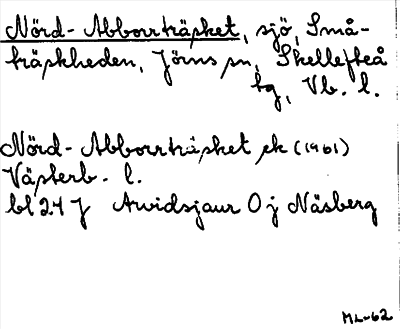 Nörd-Abborrträsket, sjö, Små-
träskheden, Jörns sn, Skellefteå
tg, Vb. l.
Nörd-Abborrträsket ek (1961)
Västerb. l.
bl 24 J Arvidsjaur O j Näsberg
ML-62